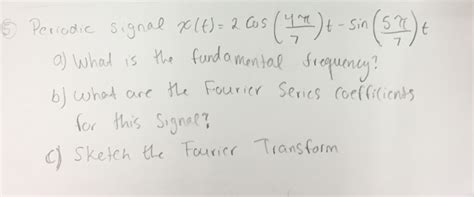 ⑤ Periodic signal x(t) = 2 Cos (4π/7) t - Sin (5π/7) t
a) What is the fundamental frequency?
b) what are the Fourier Series coefficients
for this Signal?
c) Sketch the Fourier Transform